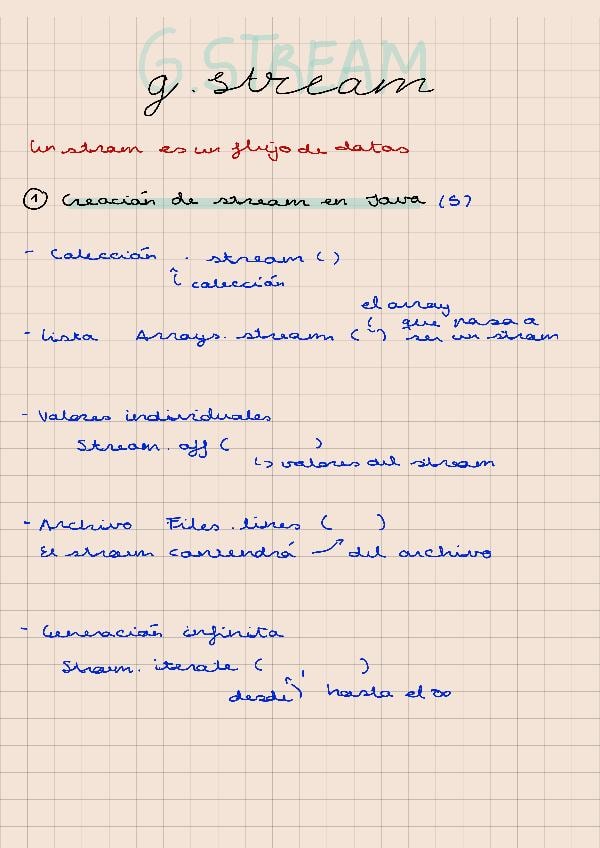 G.STREAM
g. stream
Un stram es un flujo de datos
① Creación de stream en Java (5)
- Colección . stream ()
colección
el array
que pasa a
- Lista Arrays. stream ( ) ser un stram
- Valores individuales
Stream. off ( )
↳ valores del stream
- Archivo Files. lines ( )
El stream contendrá → del archivo
- Generación infinita
Stream. iterate ( , )
desde hasta el ∞